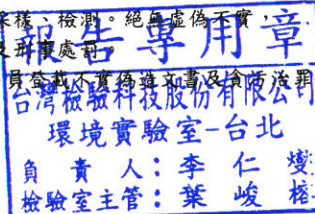 采樣、檢測。絕無虛偽不實,
及刑事處罰。
員登載不實偽造文書及貪污治罪
報告專用章
台灣檢驗科技股份有限公司
環境實驗室-台北
負責人:李仁燮
檢驗室主管:葉峻榕